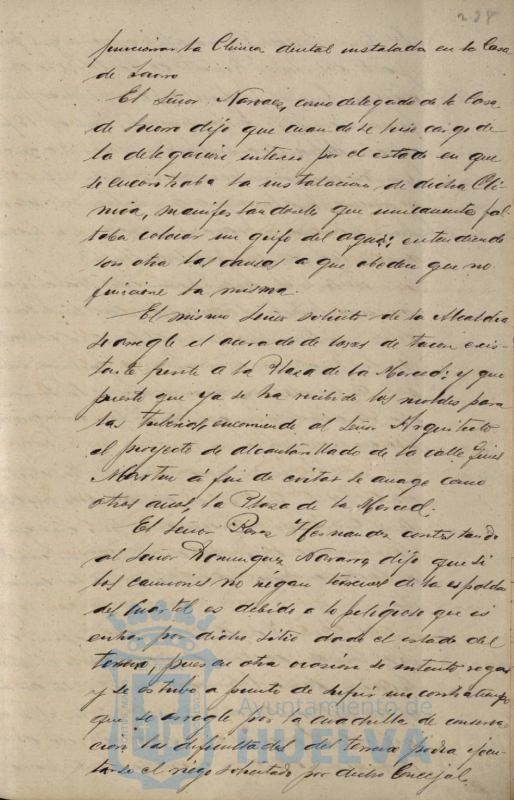 238
funcionar la Clinica dental instalada en la Casa
de Socorro
El Señor Narvaez, como delegado de la Casa
de Socorro dijo que cuando se hizo cargo de
la delegación interesó por el estado en que
se encontraba la instalacion de dicha Clí-
nica, manifestandosele que unicamente fal-
taba colocar un grifo del agua; entendiendo
son otra las causas a que obedece que no
funcione la misma.
El mismo Señor solicitó de la Alcaldia
se arregle el acerado de losas de Tacon exis-
tente frente a la Plaza de la Merced; y que
puesto que ya se ha recibido los moldes para
las tuberias, encomiende al Señor Arquitecto
el proyecto de alcantarillado de la calle Gines
Martin á fin de evitar se anege como
otros años, la Plaza de la Merced.
El Señor Perez Hernandez contestando
al Señor Dominguez Navarro, dijo que si
los camiones no riegan terrenos de la espalda
del Cuartel es debido a lo peligroso que es
entrar por dicho sitio dado el estado del
terreno, pues en otra ocasion se intentó regar
y se estubo a punto de sufrir un contratiempo
que se arregle por la cuadrilla de conserva-
cion las dificultades del terreno podra ejecu-
tarse el riego solicitado por dicho Concejal.
Ayuntamiento de
HUELVA